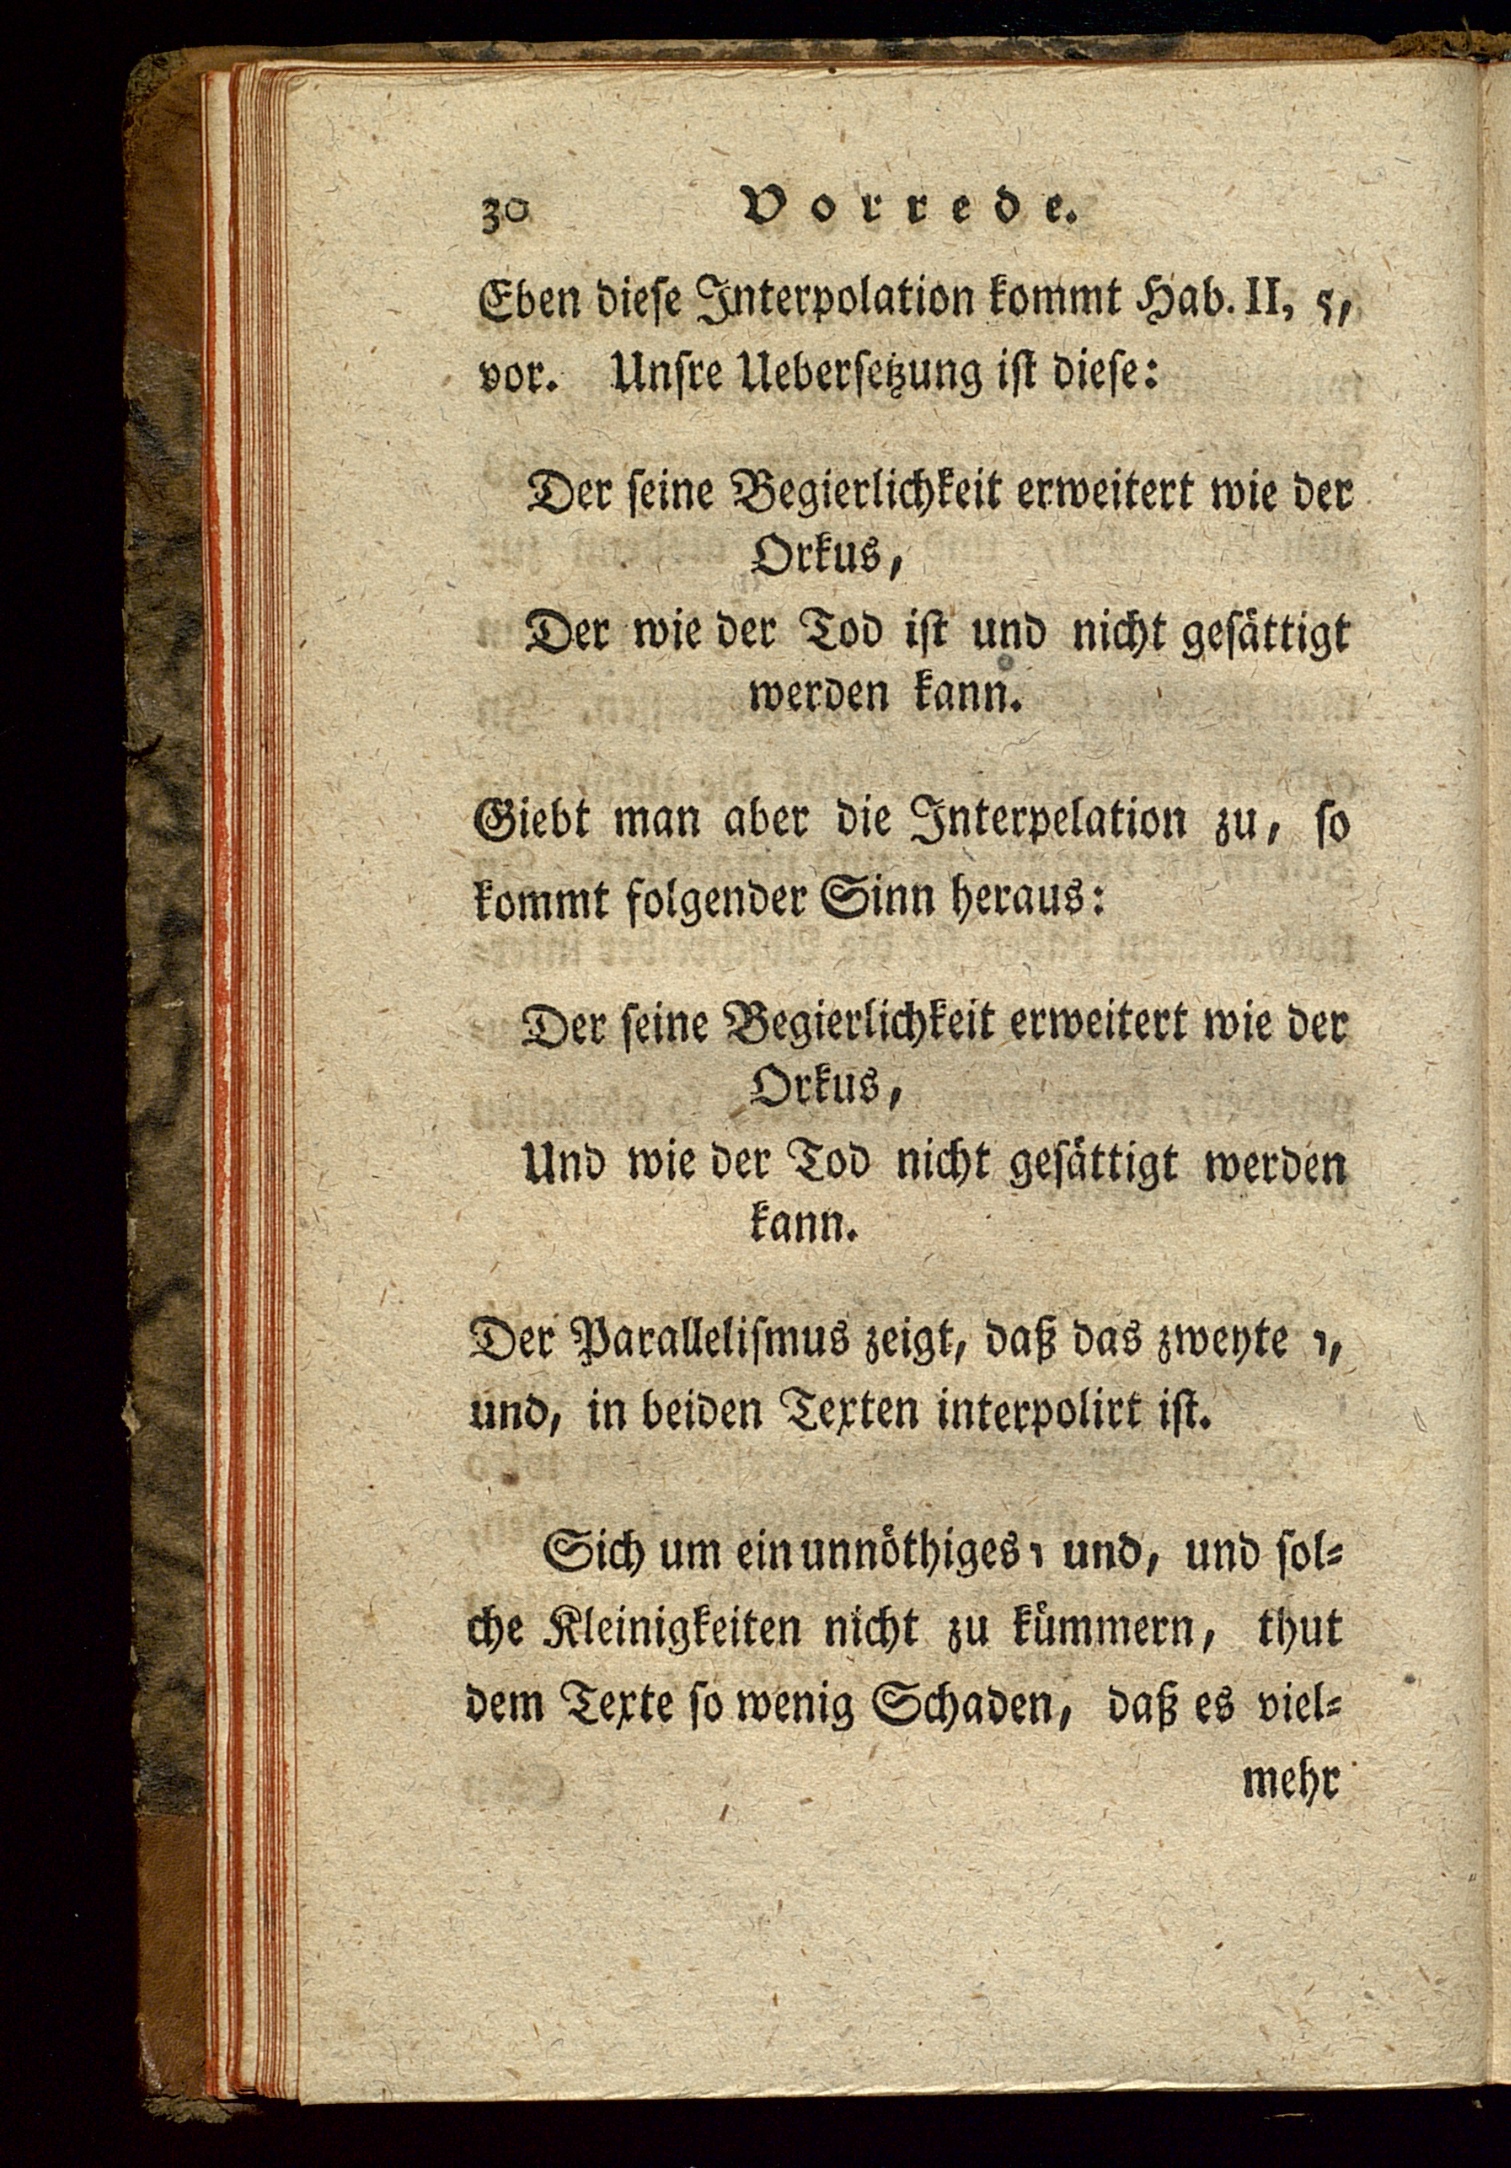 30 Vorrede.
Eben dieſe Interpolation kommt Hab. II, 5,
vor. Unſre Ueberſetzung iſt dieſe:
Der ſeine Begierlichkeit erweitert wie der
Orkus,
Der wie der Tod iſt und nicht geſättigt
werden kann.
Giebt man aber die Interpelation zu, ſo
kommt folgender Sinn heraus:
Der ſeine Begierlichkeit erweitert wie der
Orkus,
Und wie der Tod nicht geſättigt werden
kann.
Der Parallelismus zeigt, daß das zweyte ו,
und, in beiden Texten interpolirt iſt.
Sich um ein unnöthiges ו und, und ſol⸗
che Kleinigkeiten nicht zu kümmern, thut
dem Texte ſo wenig Schaden, daß es viel⸗
mehr